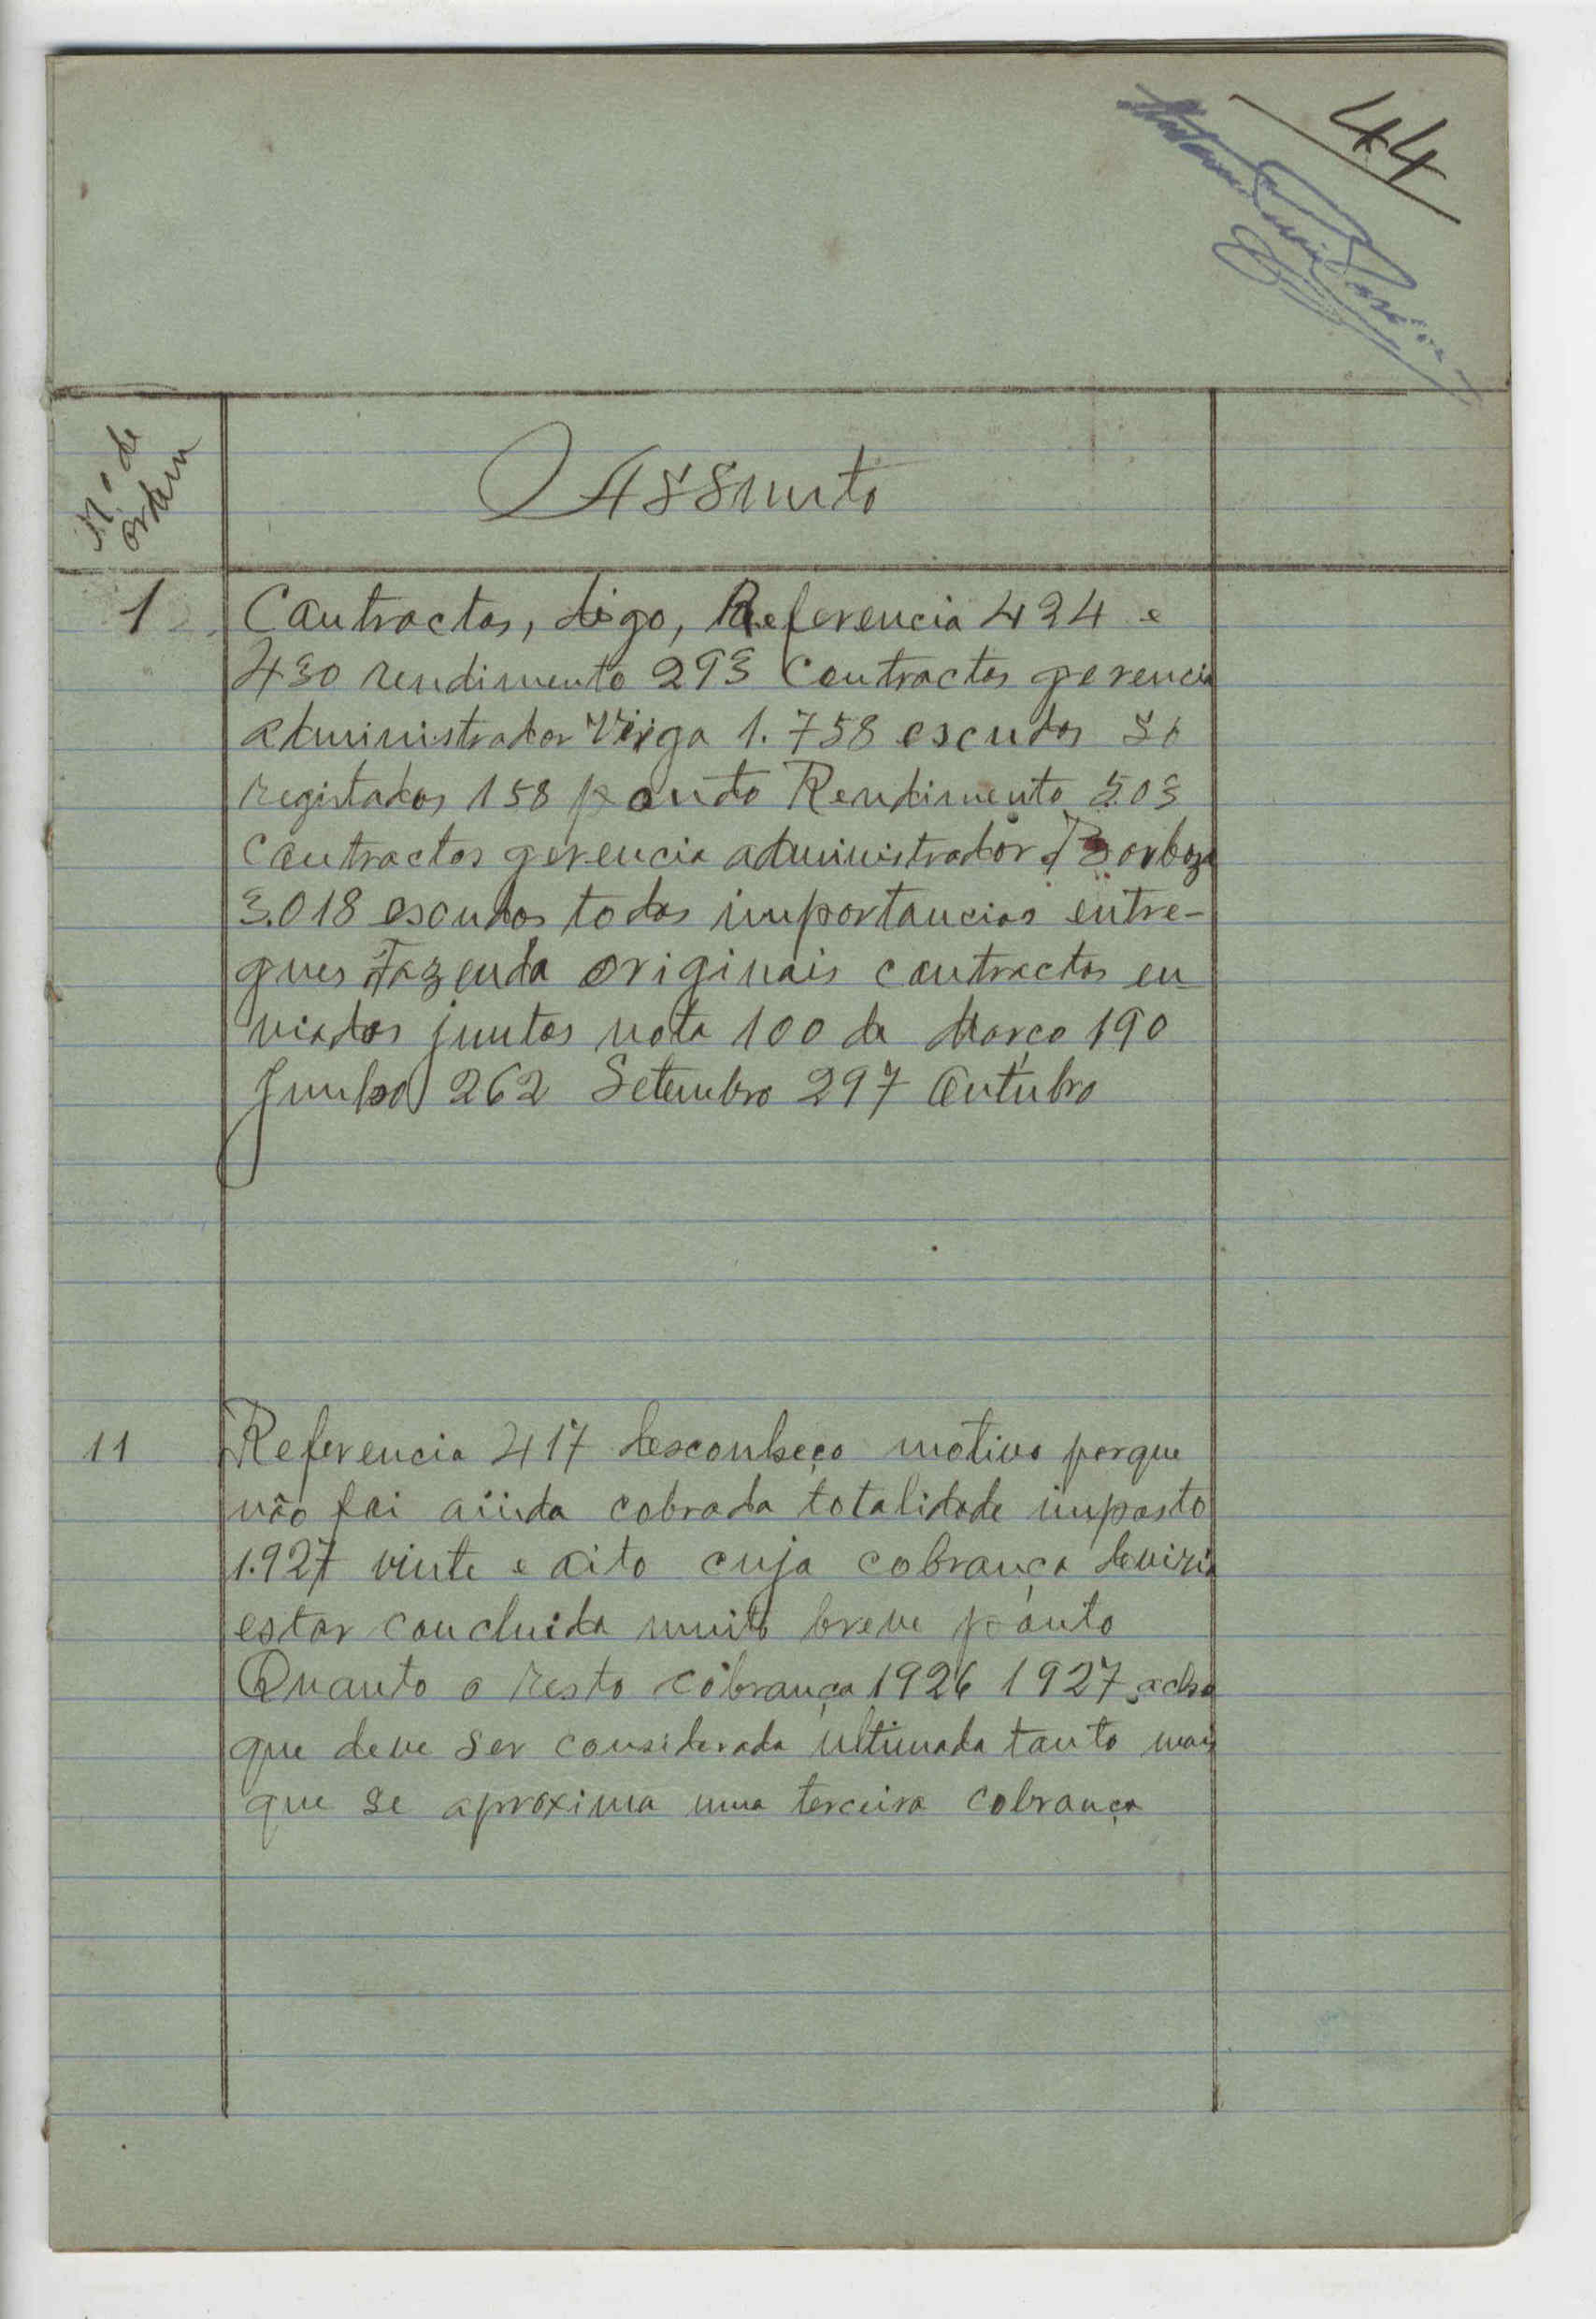 44
N.º de
ordem
Assunto
1 Contractos, digo, Referencia 424 e
430 rendimento 293 Contractos gerencia
administrador Veiga 1.758 escudos Só
registados 158 ponto Rendimento 503
contractos gerencia administrador Barboza
3.018 escudos todas importancias entre-
gues Fazenda originais contractos en-
viados juntos nota 100 de Março 190
Junho 262 Setembro 297 Outubro
11 Referencia 417 desconheço motivo porque
não foi aiinda cobrada totalidade imposto
1.927 vinte e oito cuja cobrança deviria
estar concluida muito breve ponto
Quanto o resto cobrança 1926 1927 acho
que deve ser considerada ultimada tanto mais
que se aproxima uma terceira cobrança